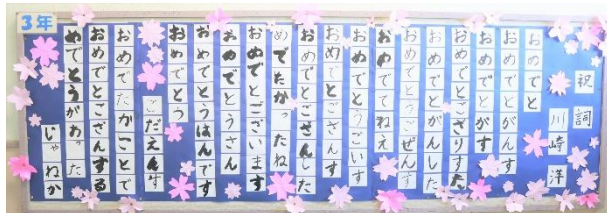 3年
祝詞
川崎 洋
おめでと
おめでとがんす
おめでとがす
おめでとござりすた
おめでとがんした
おめでとうごぜんす
おめでてねえ
おめでとうごいす
おめでとござんす
おめでとござんした
めでたかったね
おめでとございます
おめでとうさん
おめでとうはんです
おめでとう
だえんす
おめでたかことで
おめでとござんする
めでとうがわった
じゃねか